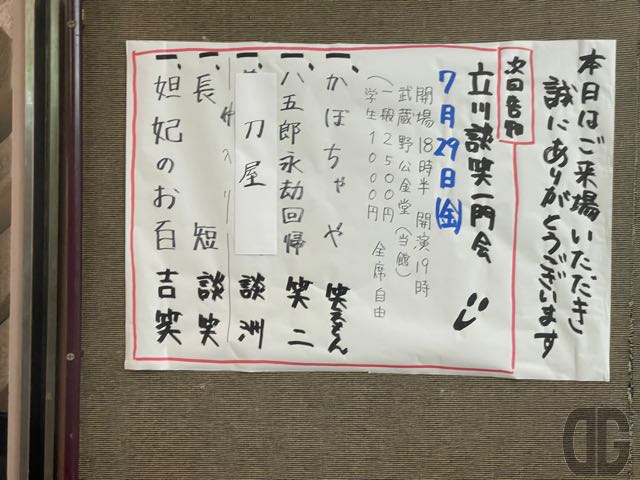 本日はご来場いただき
誠にありがとうございます
次回告知
立川談笑一門会
7月29日(金)
開場18時半 開演19時
武蔵野公会堂(当館)
(一般2500円
学生1000円
全席自由
一、かぼちゃや 笑えもん
一、八五郎永劫回帰 笑二
刀屋 談洲
仲入り
一、長短 談笑
一、妲妃のお百 吉笑
DG